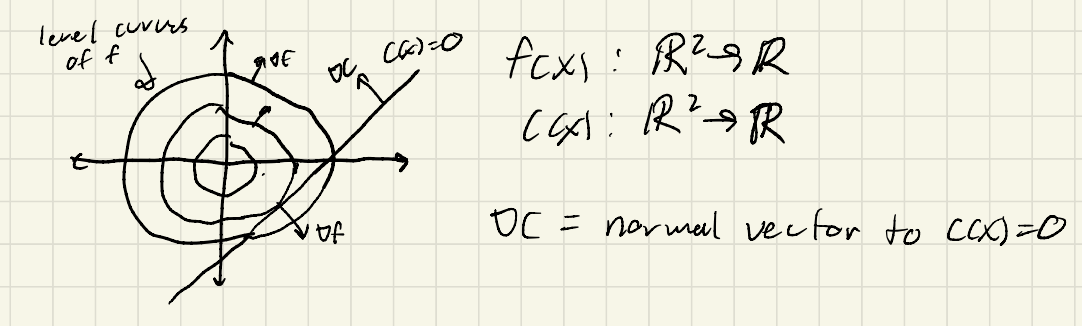 level curves
of f
∇F
∇C
C(x)=0
∇f
f(x) : ℝ² → ℝ
C(x) : ℝ² → ℝ
∇C = normal vector to C(x)=0